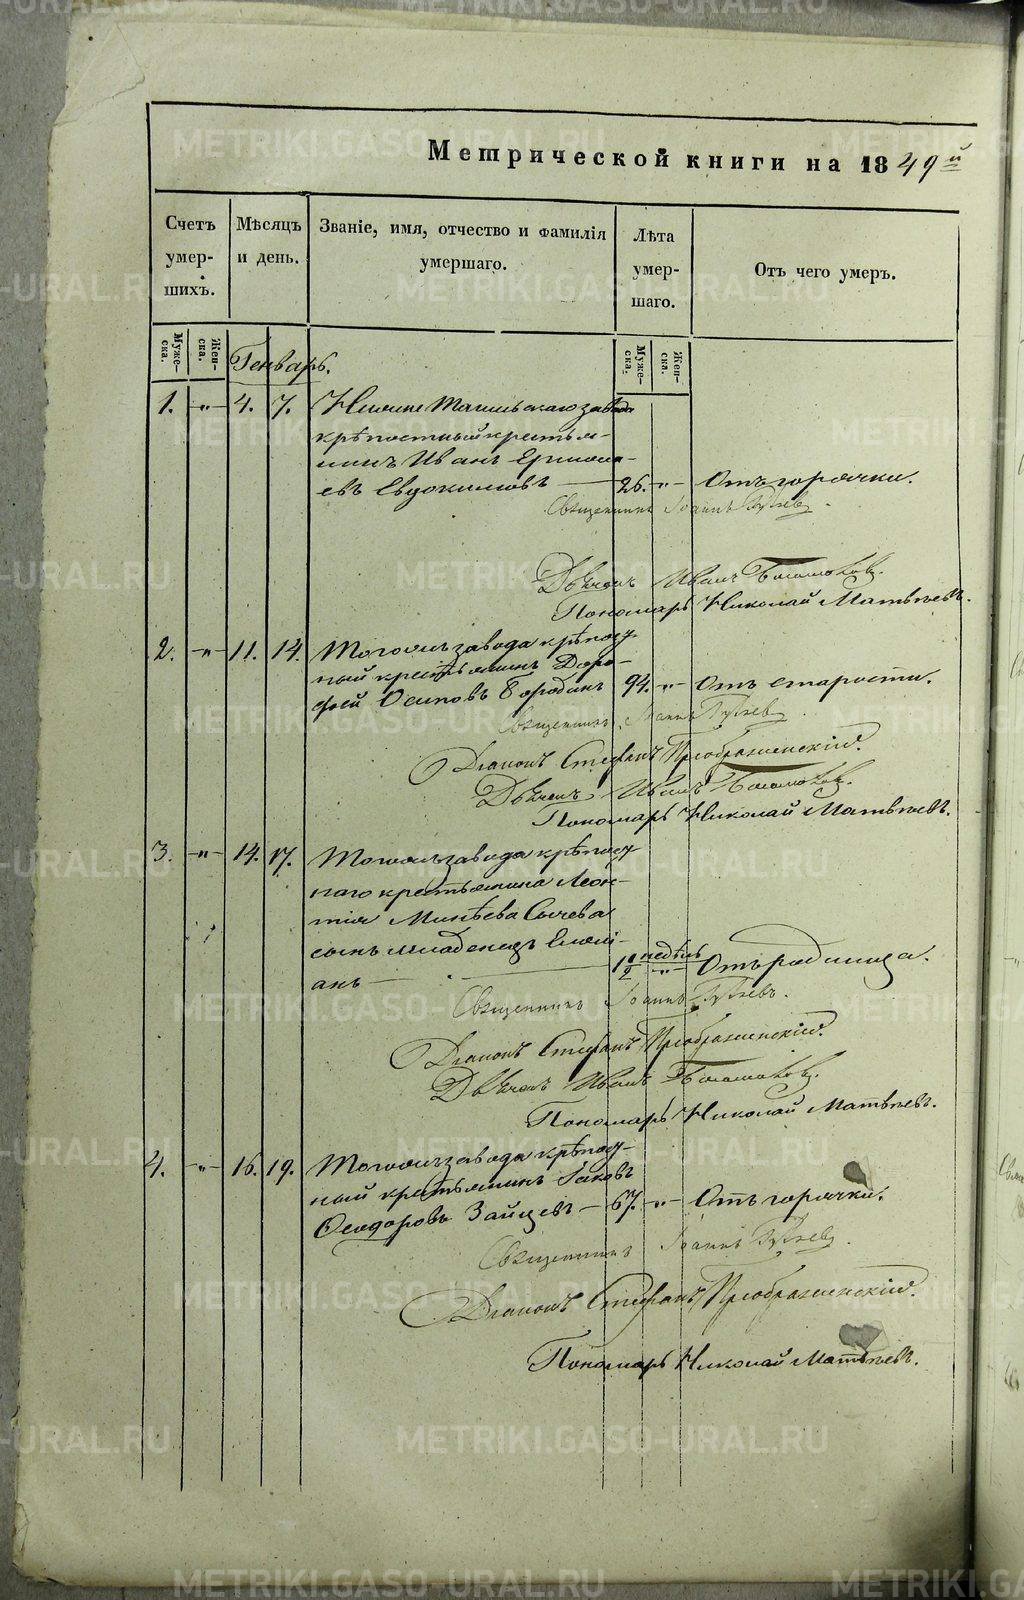 METRIKI.GASO-URAL.RU
Метрической книги на 1849й
Счетъ умершихъ.
Мѣсяцъ и день.
Званіе, имя, отчество и фамилія умершаго.
Лѣта умершаго.
Отъ чего умеръ.
Мужеска.
Женска.
Мужеска.
Женска.
Генварь.
1. -"- 4. 7. Нижне Тагильскаго завода
крѣпостный крестья-
нинъ Иванъ Ермола-
евъ Евдокимовъ — 26. -"- Отъ горячки.
Священникъ Іоаннъ
Дьячекъ Иванъ
Пономарь Николай Матвѣевъ.
2. -"- 11. 14. Тогожъ завода крѣпост-
ный крестьянинъ Доро-
фей Осиповъ Бородинъ 94. -"- Отъ старости.
Священникъ Іоаннъ
Діаконъ Стефанъ Преображенскій.
Дьячекъ Иванъ
Пономарь Николай Матвѣевъ.
3. -"- 14. 17. Тогожъ завода крѣпост-
наго крестьянина Леон-
тія Минѣева Сычева
сынъ младенецъ Емелі-
анъ — 1 1/2 недѣль -"- Отъ родимца.
Священникъ Іоаннъ
Діаконъ Стефанъ Преображенскій.
Дьячекъ Иванъ
Пономарь Николай Матвѣевъ.
4. -"- 16. 19. Тогожъ завода крѣпост-
ный крестьянинъ Іаковъ
Ѳеодоровъ Зайцевъ — 67. -"- Отъ горячки.
Священникъ Іоаннъ
Діаконъ Стефанъ Преображенскій.
Пономарь Николай Матвѣевъ.